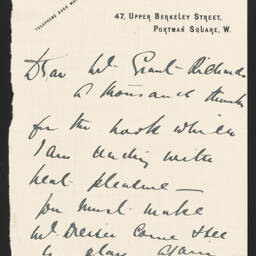 47, Upper Berkeley Street,
Portman Square, W.
Dear Mr Grant-Richards
A thousand thanks
for the book which
I am reading with
great pleasure —
you must make
Mr Dreiser Come & see